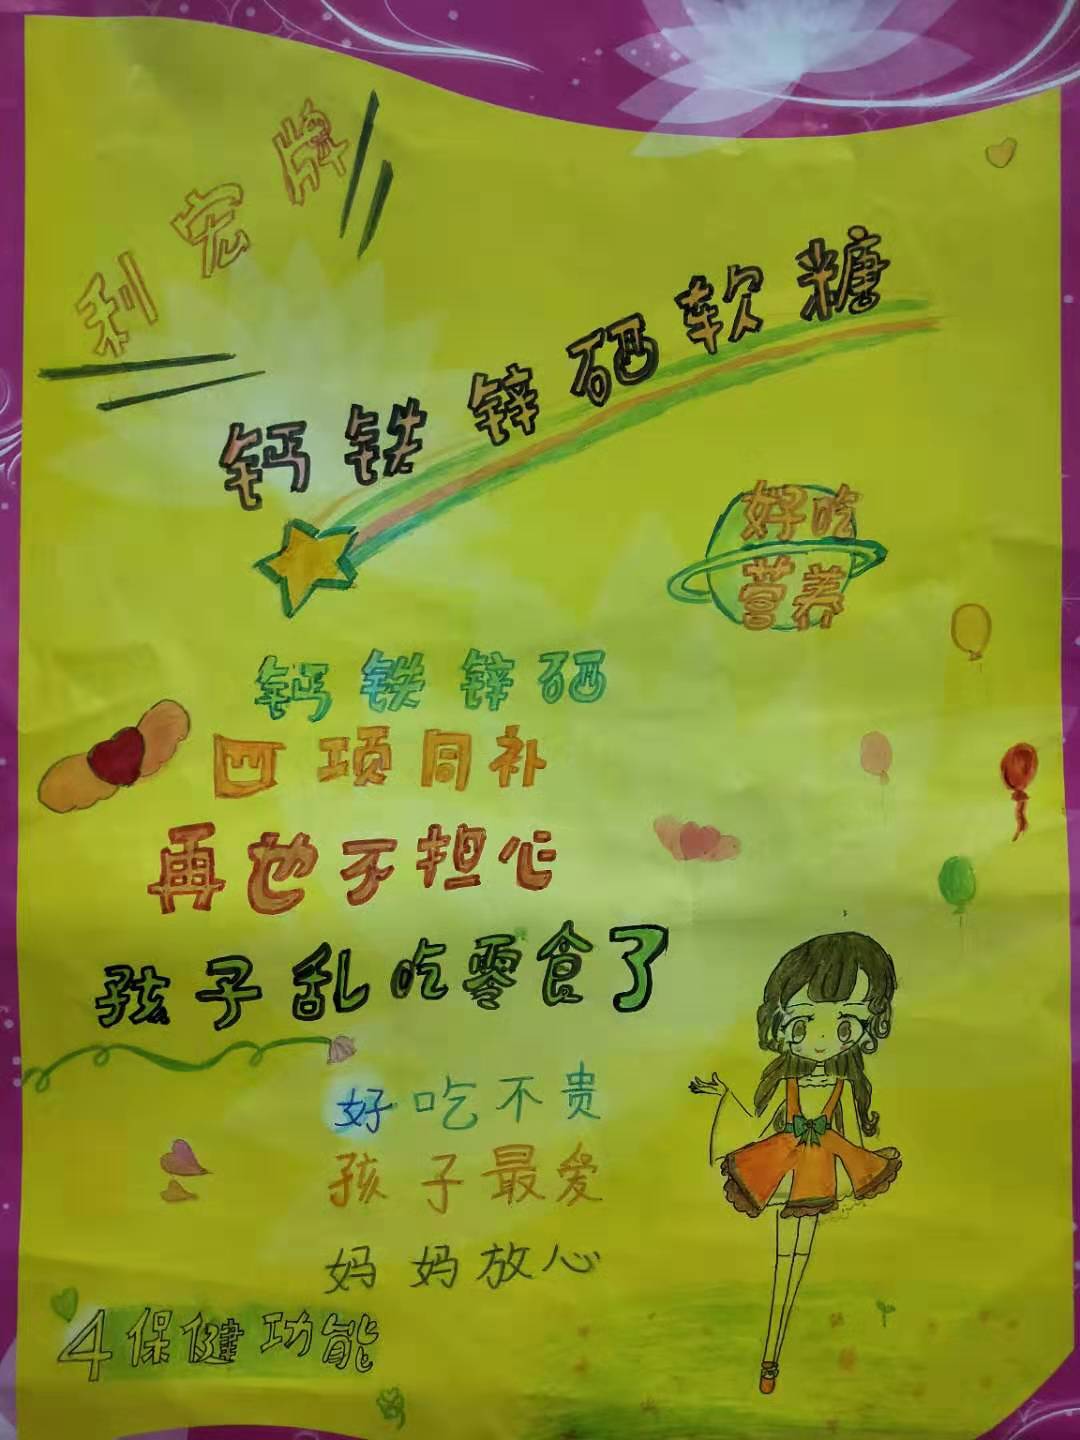 利宏牌
钙铁锌硒软糖
好吃
营养
钙铁锌硒
四项同补
再也不担心
孩子乱吃零食了
好吃不贵
孩子最爱
妈妈放心
4保健功能